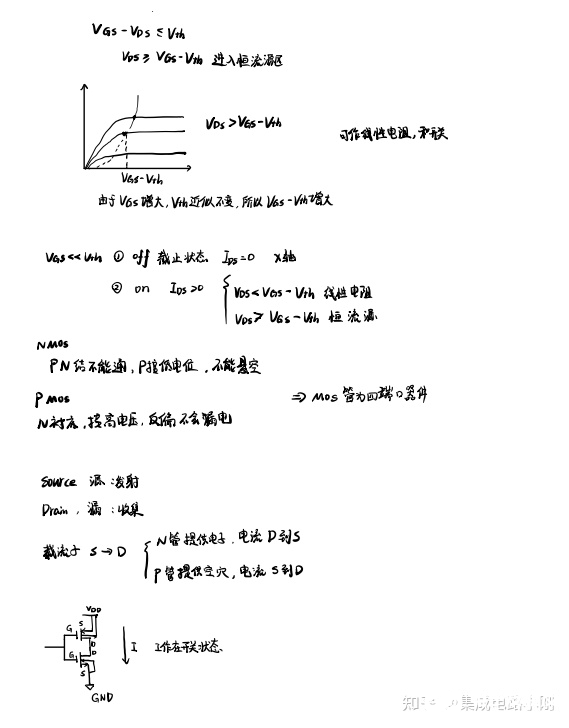 VGS-VDS≤Vth
VDS≥VGS-Vth 进入恒流源区
VDS>VGS-Vth
可作线性电阻,和开关
VGS-Vth
由于VGS增大,Vth近似不变,所以VGS-Vth增大
VGS<<Vth ① off 截止状态. IDS=0 X轴
② on IDS>0
VDS<VGS-Vth 线性电阻
VDS>VGS-Vth 恒流源
NMOS
PN结不能通,P接低电位,不能悬空
PMOS
N衬底,接高电压,反偏不会漏电
⇒ MOS管为四端口器件
Source 源:发射
Drain, 漏:收集
载流子 S→D
N管提供电子,电流D到S
P管提供空穴,电流S到D
VDD
S
G
D
D
G
S
GND
I 工作在开关状态.
知乎 集成电路